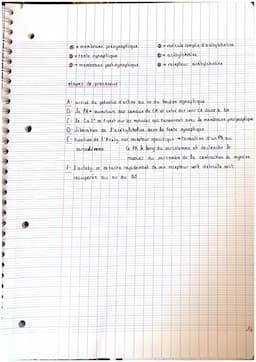 ① = membrane présynaptique
② = fente synaptique
③ = membrane postsynaptique
④ = vésicule remplie d'acétylcholine
⑤ = acétylcholine
⑥ = récepteur acétylcholine
étapes du processus
A: arrivé du potentiel d'action au niv du bouton synaptique
B: le PA → ouverture des canaux de CA et entrée des ions CA dans le
C: le Ca²⁺ se fixent sur les vésicules qui fusionnent avec la membrane présynaptique
D: libération de l'acétylcholine dans la fente synaptique
E: fixation de l'Acéty. sur récepteur spécifique → formation d'un PA au
sarcolemme. le PA le long du sarcolemme et déclenche le
de la contraction du myocyte
F: l'acétylc. se détache rapidement de son récepteur soit détruite soit
recuperée au niv du